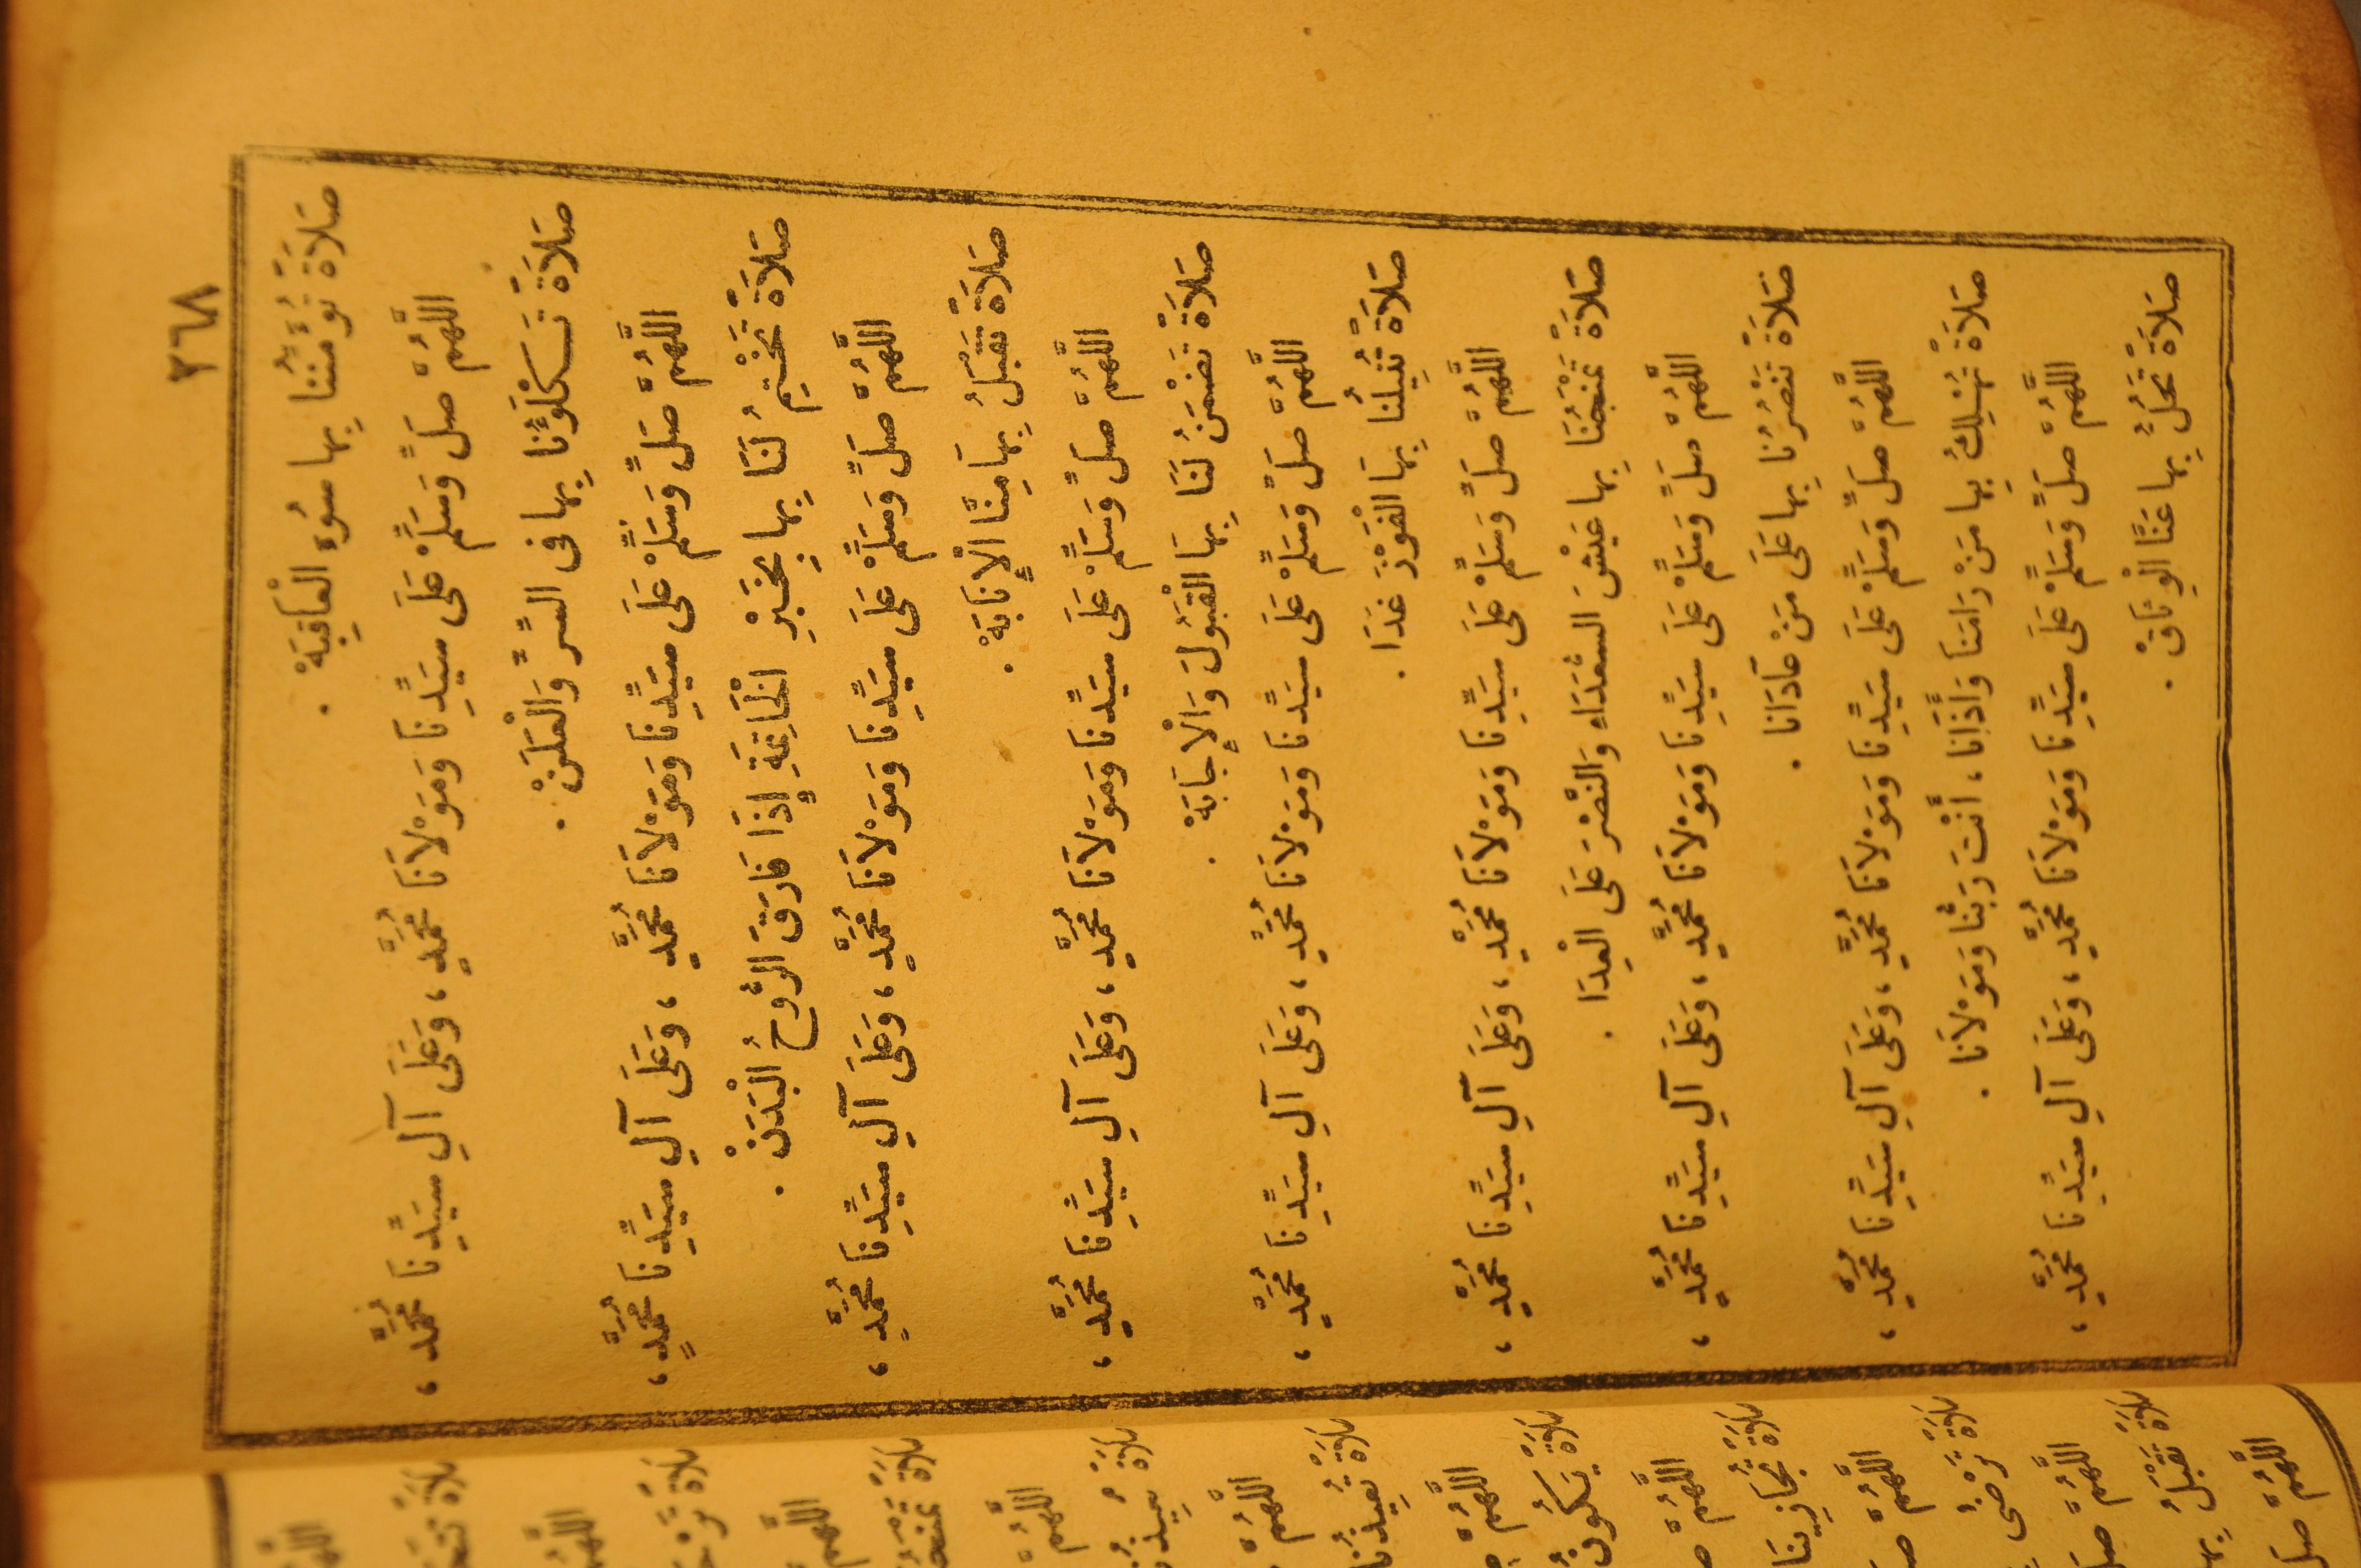 ٣٦٨
صَلَاةً تُؤَمِّنُنَا بِهَا سُوءَ الْعَاقِبَةْ .
اللَّهُمَّ صَلِّ وَسَلِّمْ عَلَى سَيِّدِنَا وَمَوْلَانَا مُحَمَّدٍ ، وَعَلَى آلِ سَيِّدِنَا مُحَمَّدٍ ،
صَلَاةً تَكْلَؤُنَا بِهَا فِى السِّرِّ وَالْعَلَنْ .
اللَّهُمَّ صَلِّ وَسَلِّمْ عَلَى سَيِّدِنَا وَمَوْلَانَا مُحَمَّدٍ ، وَعَلَى آلِ سَيِّدِنَا مُحَمَّدٍ ،
صَلَاةً تَخْتِمُ لَنَا بِهَا بِخَيْرِ الْخَاتِمَةِ إِذَا فَارَقَ الرُّوحُ الْبَدَنْ .
اللَّهُمَّ صَلِّ وَسَلِّمْ عَلَى سَيِّدِنَا وَمَوْلَانَا مُحَمَّدٍ ، وَعَلَى آلِ سَيِّدِنَا مُحَمَّدٍ ،
صَلَاةً تَقْبَلُ بِهَا مِنَّا الْإِنَابَةْ .
اللَّهُمَّ صَلِّ وَسَلِّمْ عَلَى سَيِّدِنَا وَمَوْلَانَا مُحَمَّدٍ ، وَعَلَى آلِ سَيِّدِنَا مُحَمَّدٍ ،
صَلَاةً تَضْمَنُ لَنَا بِهَا الْقَبُولَ وَالْإِجَابَةْ .
اللَّهُمَّ صَلِّ وَسَلِّمْ عَلَى سَيِّدِنَا وَمَوْلَانَا مُحَمَّدٍ ، وَعَلَى آلِ سَيِّدِنَا مُحَمَّدٍ ،
صَلَاةً تُنِيلُنَا بِهَا الْفَوْزَ غَدَا .
اللَّهُمَّ صَلِّ وَسَلِّمْ عَلَى سَيِّدِنَا وَمَوْلَانَا مُحَمَّدٍ ، وَعَلَى آلِ سَيِّدِنَا مُحَمَّدٍ ،
صَلَاةً تَمْنَحُنَا بِهَا عَيْشَ السُّعَدَاءِ وَالنَّصْرَ عَلَى الْعِدَا .
اللَّهُمَّ صَلِّ وَسَلِّمْ عَلَى سَيِّدِنَا وَمَوْلَانَا مُحَمَّدٍ ، وَعَلَى آلِ سَيِّدِنَا مُحَمَّدٍ ،
صَلَاةً تَنْصُرُنَا بِهَا عَلَى مَنْ عَادَانَا .
اللَّهُمَّ صَلِّ وَسَلِّمْ عَلَى سَيِّدِنَا وَمَوْلَانَا مُحَمَّدٍ ، وَعَلَى آلِ سَيِّدِنَا مُحَمَّدٍ ،
صَلَاةً تُهْلِكُ بِهَا مَنْ رَامَنَا وَآذَانَا ، أَنْتَ رَبُّنَا وَمَوْلَانَا .
اللَّهُمَّ صَلِّ وَسَلِّمْ عَلَى سَيِّدِنَا وَمَوْلَانَا مُحَمَّدٍ ، وَعَلَى آلِ سَيِّدِنَا مُحَمَّدٍ ،
صَلَاةً تَحُلُّ بِهَا عَنَّا الْوِثَاقْ .